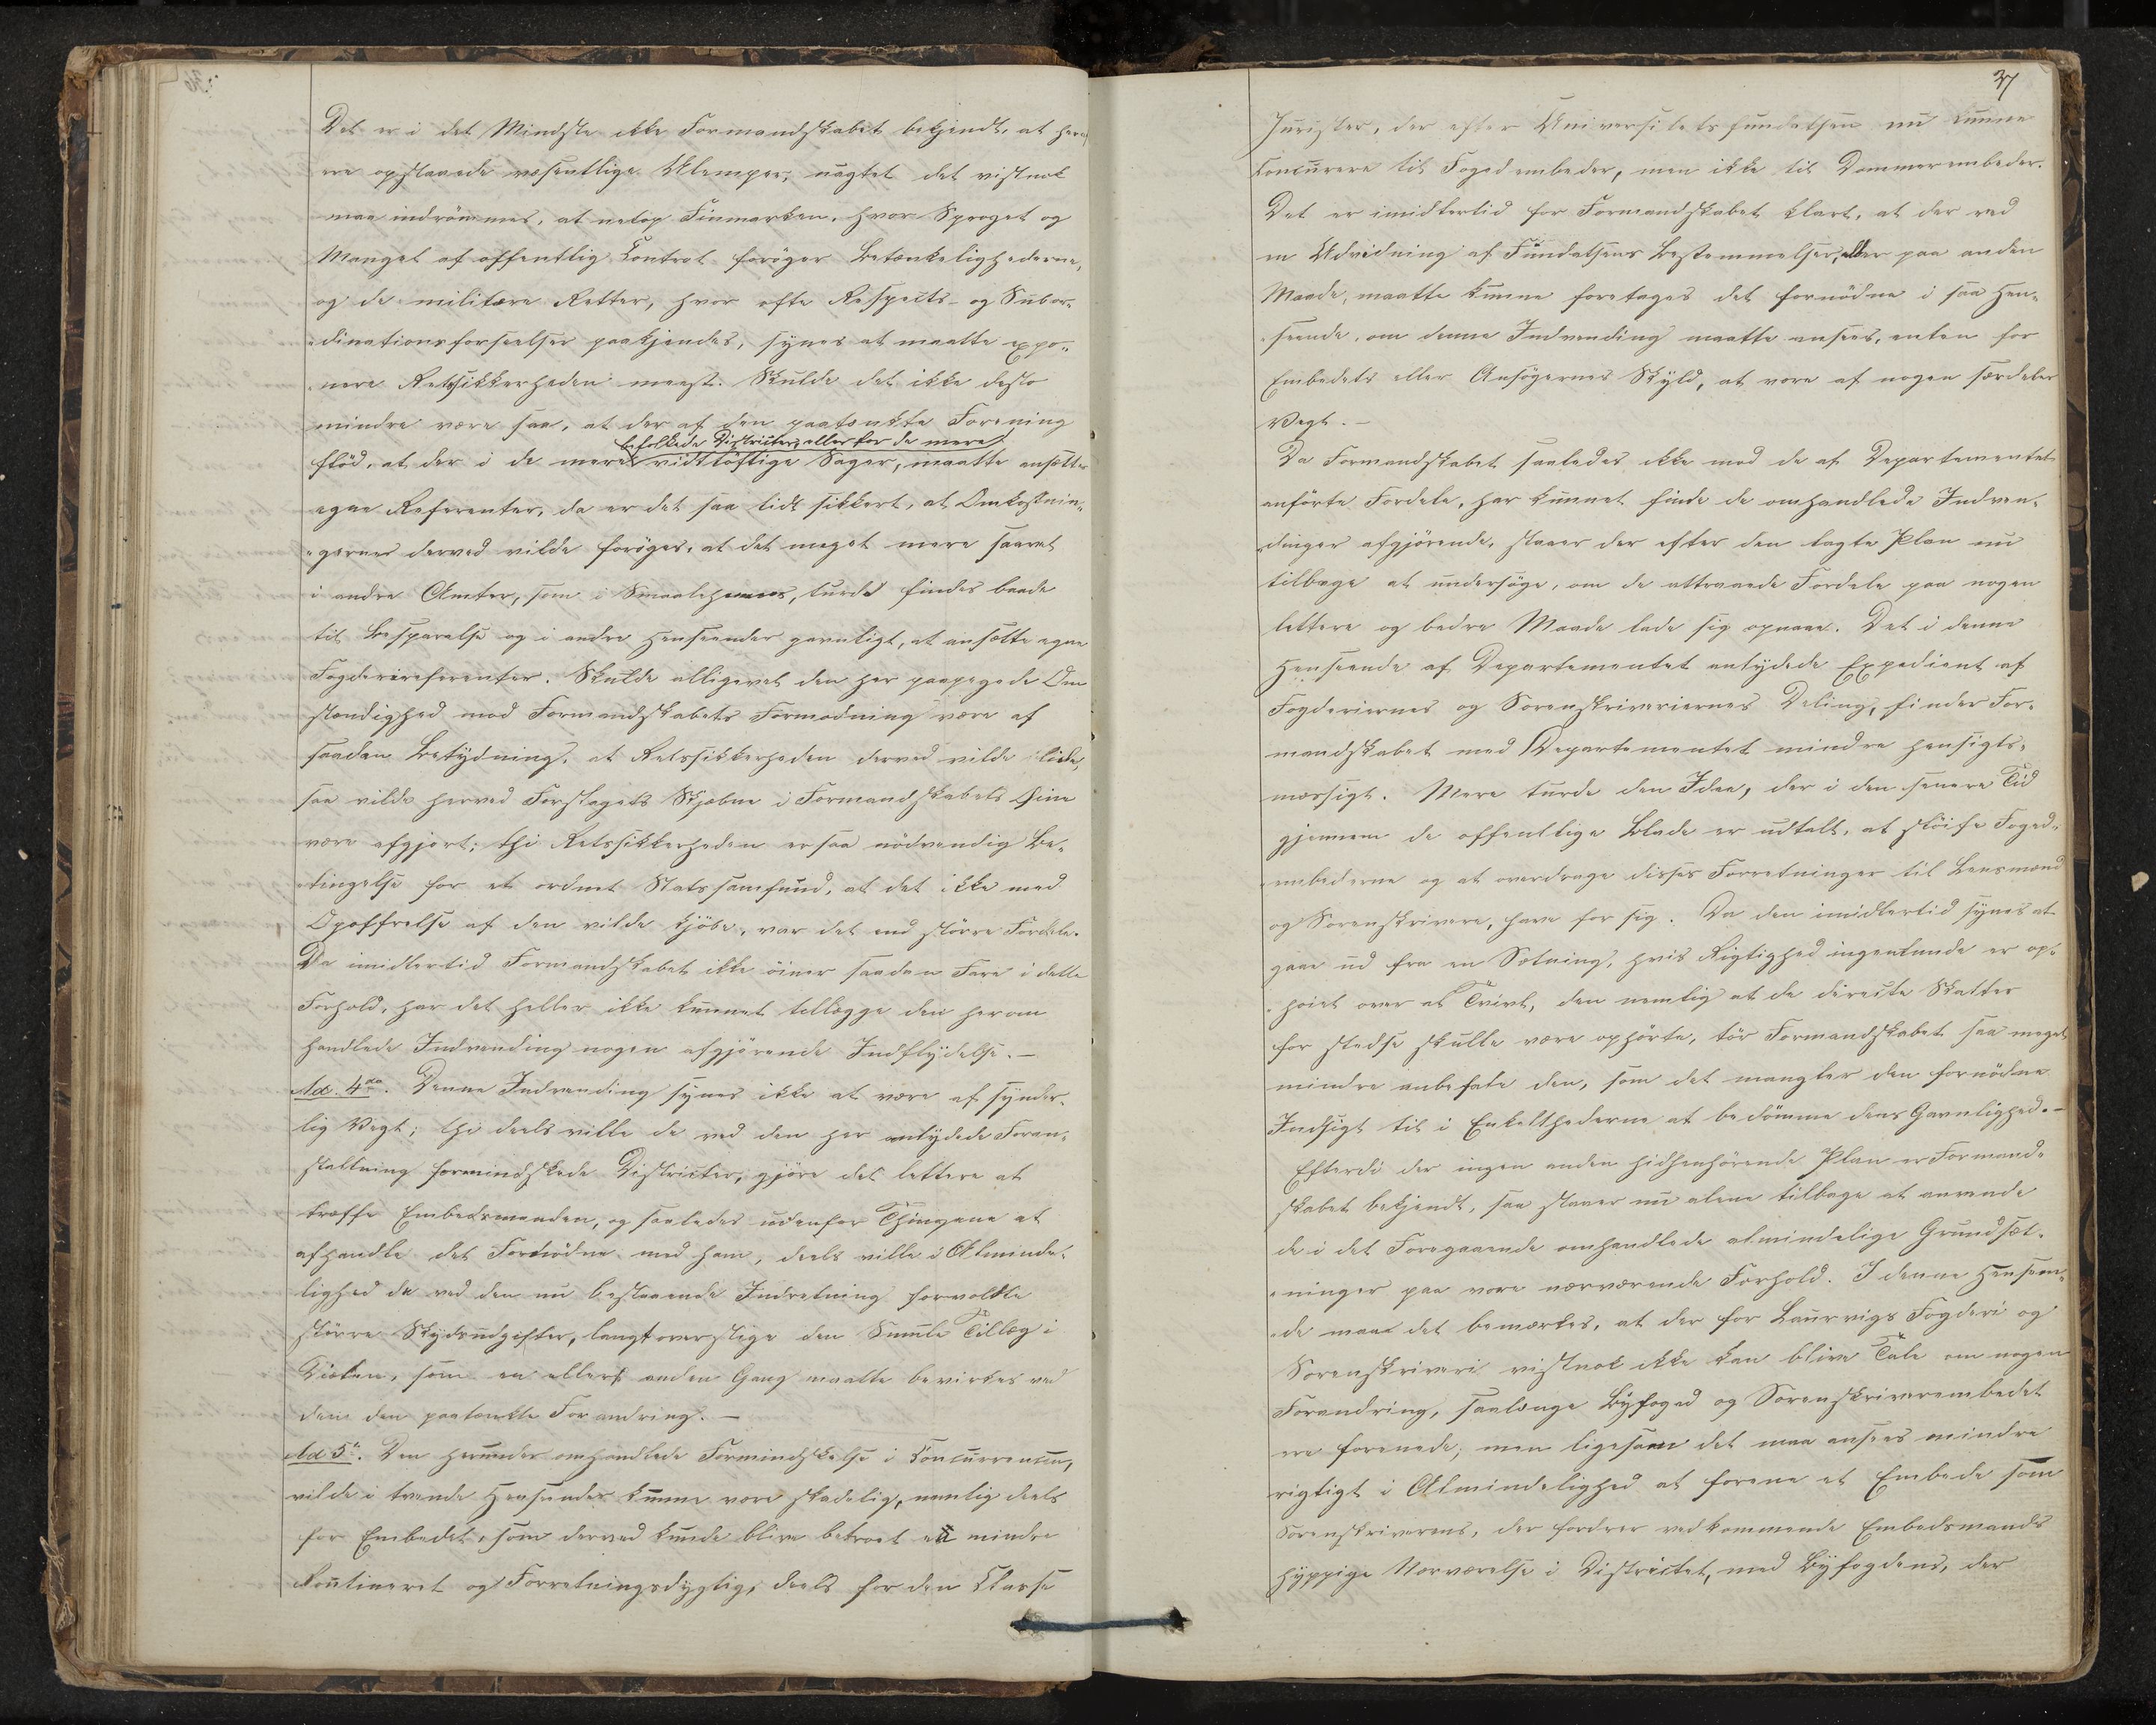 Det er i det Mindste ikke Formandskabet bekjendt, at her
ere opstaaede væsentlige Ulemper, uagtet det vistnok
maa indrömmes, at netop Finmarken, hvor Sproget og
Mangel af offentlig Control foröger Betænkelighederne,
og de militære Retter, hvor ofte Respects- og Subor-
dinationsforseelser paakjendes, synes at maatte expo-
nere Retssikkerheden meest. Skulde det ikke desto
mindre være saa, at der af den paatænkte Forening
befolkede Districter, eller for de mere
flöd, at der i de mere vidtlöftige Sager, maatte ansætte
egne Referenter, da er det saa lidt sikkert, at Omkostnin-
gerne derved vilde foröges, at det meget mere saavel
i andre Amter, som i Smaalehnenes, turde findes baade
til Besparelse og i andre Henseender gavnligt, at ansætte egne
Fogderireferenter. Skulde alligevel den her paapegede Om
stændighed mod Formandskabets Formodning være af
saadan Betydning, at Retssikkerheden derved vilde lide,
saa vilde herved Forslagets Skjæbne i Formandskabets Öine
være afgjort; thi Retssikkerheden er saa nödvendig Be-
tingelse for et ordnet Statssamfund, at det ikke med
Opoffrelse af den vilde kjöbe, var det end större Fordele.
Da imidlertid Formandskabet ikke öiner saadan Fare i dette
Forhold, har det heller ikke kunnet tillægge den herom
handlede Indvending nogen afgjörende Indflydelse. –
Ad. 4do. Denne Indvending synes ikke at være af synder-
lig Vegt; thi deels ville de ved den her antydede Foran-
staltning formindskede Districter, gjöre det lettere at
træffe Embedsmanden, og saaledes udenfor Thingene at
afhandle det Fornödne med ham, deels ville i Almindel-
lighed de ved den nu bestaaende Indretning forvoldte
större Skydsudgifter, langt overstige den Smule Tillæg i
Diæten, som en eller anden Gang maatte bevirkes ved
dem den paatænkte Forandring. –
Ad 5o. Den herunder omhandlede Formindskelse i Concurrencen,
vilde i tvende Henseender kunne være skadelig, nemlig deels
for Embedet, som derved kunde blive betroet en mindre
Routineret og Forretningsdygtig, deels for den Classe
37
Jurister, der efter Universitetsfundatsen nu kunne
Concurere til Fogedembeder, men ikke til Dommerembeder.
Det er imidlertid for Formandskabet klart, at der ved
en Udvidning af Fundatsens Bestemmelser, eller paa anden
Maade, maatte kunne foretages det fornödne i saa Hen-
seende, om denne Indvending maatte ansees, enten for
Embedets eller Ansögernes Skyld, at være af nogen særdeles
Vegt. –
Da Formandskabet saaledes ikke mod de af Departementet
anförte Fordele, har kunnet finde de omhandlede Indven-
dinger afgjörende, staaer der efter den lagte Plan nu
tilbage at undersöge, om de attraaede Fordele paa nogen
lettere og bedre Maade lade sig opnaae. Det i denne
Henseende af Departementet antydede Expedient af
Fogderiernes og Sorenskriveriernes Deling, finder For-
mandskabet med Departementet mindre hensigts-
mæssigt. Mere turde den Idee, der i den senere Tid
gjennem de offentlige Blade er udtalt, at slöife Foged-
embederne og at overdrage disses Forretninger til Lensmænd
og Sorenskrivere, have for sig. Da den imidlertid synes at
gaae ud fra en Sætning, hvis Rigtighed ingenlunde er op-
höiet over al Tvivl, den nemlig at de directe Skatter
for stedse skulle være ophörte, tör Formandskabet saa meget
mindre anbefale den, som det mangler den fornödne
Indsigt til i Enkelthederne at bedömme dens Gavnlighed. –
Efterdi der ingen anden hidhenhörende Plan er Formand-
skabet bekjendt, saa staaer nu alene tilbage at anvende
de i det Foregaaende omhandlede almindelige Grundsæt-
ninger paa vore nærværende Forhold. I denne Henseen-
de maae det bemærkes, at der for Laurvigs Fogderi og
Sorenskriveri vistnok ikke kan blive Tale om nogen
Forandring, saalænge Byfoged og Sorenskriverembedet
ere forenede; men ligesom det maa ansees mindre
rigtigt i Almindelighed at forene et Embede som
Sorenskriverens, der fordrer vedkommende Embedsmands
hyppige Nærværelse i Districtet, med Byfogdens, der